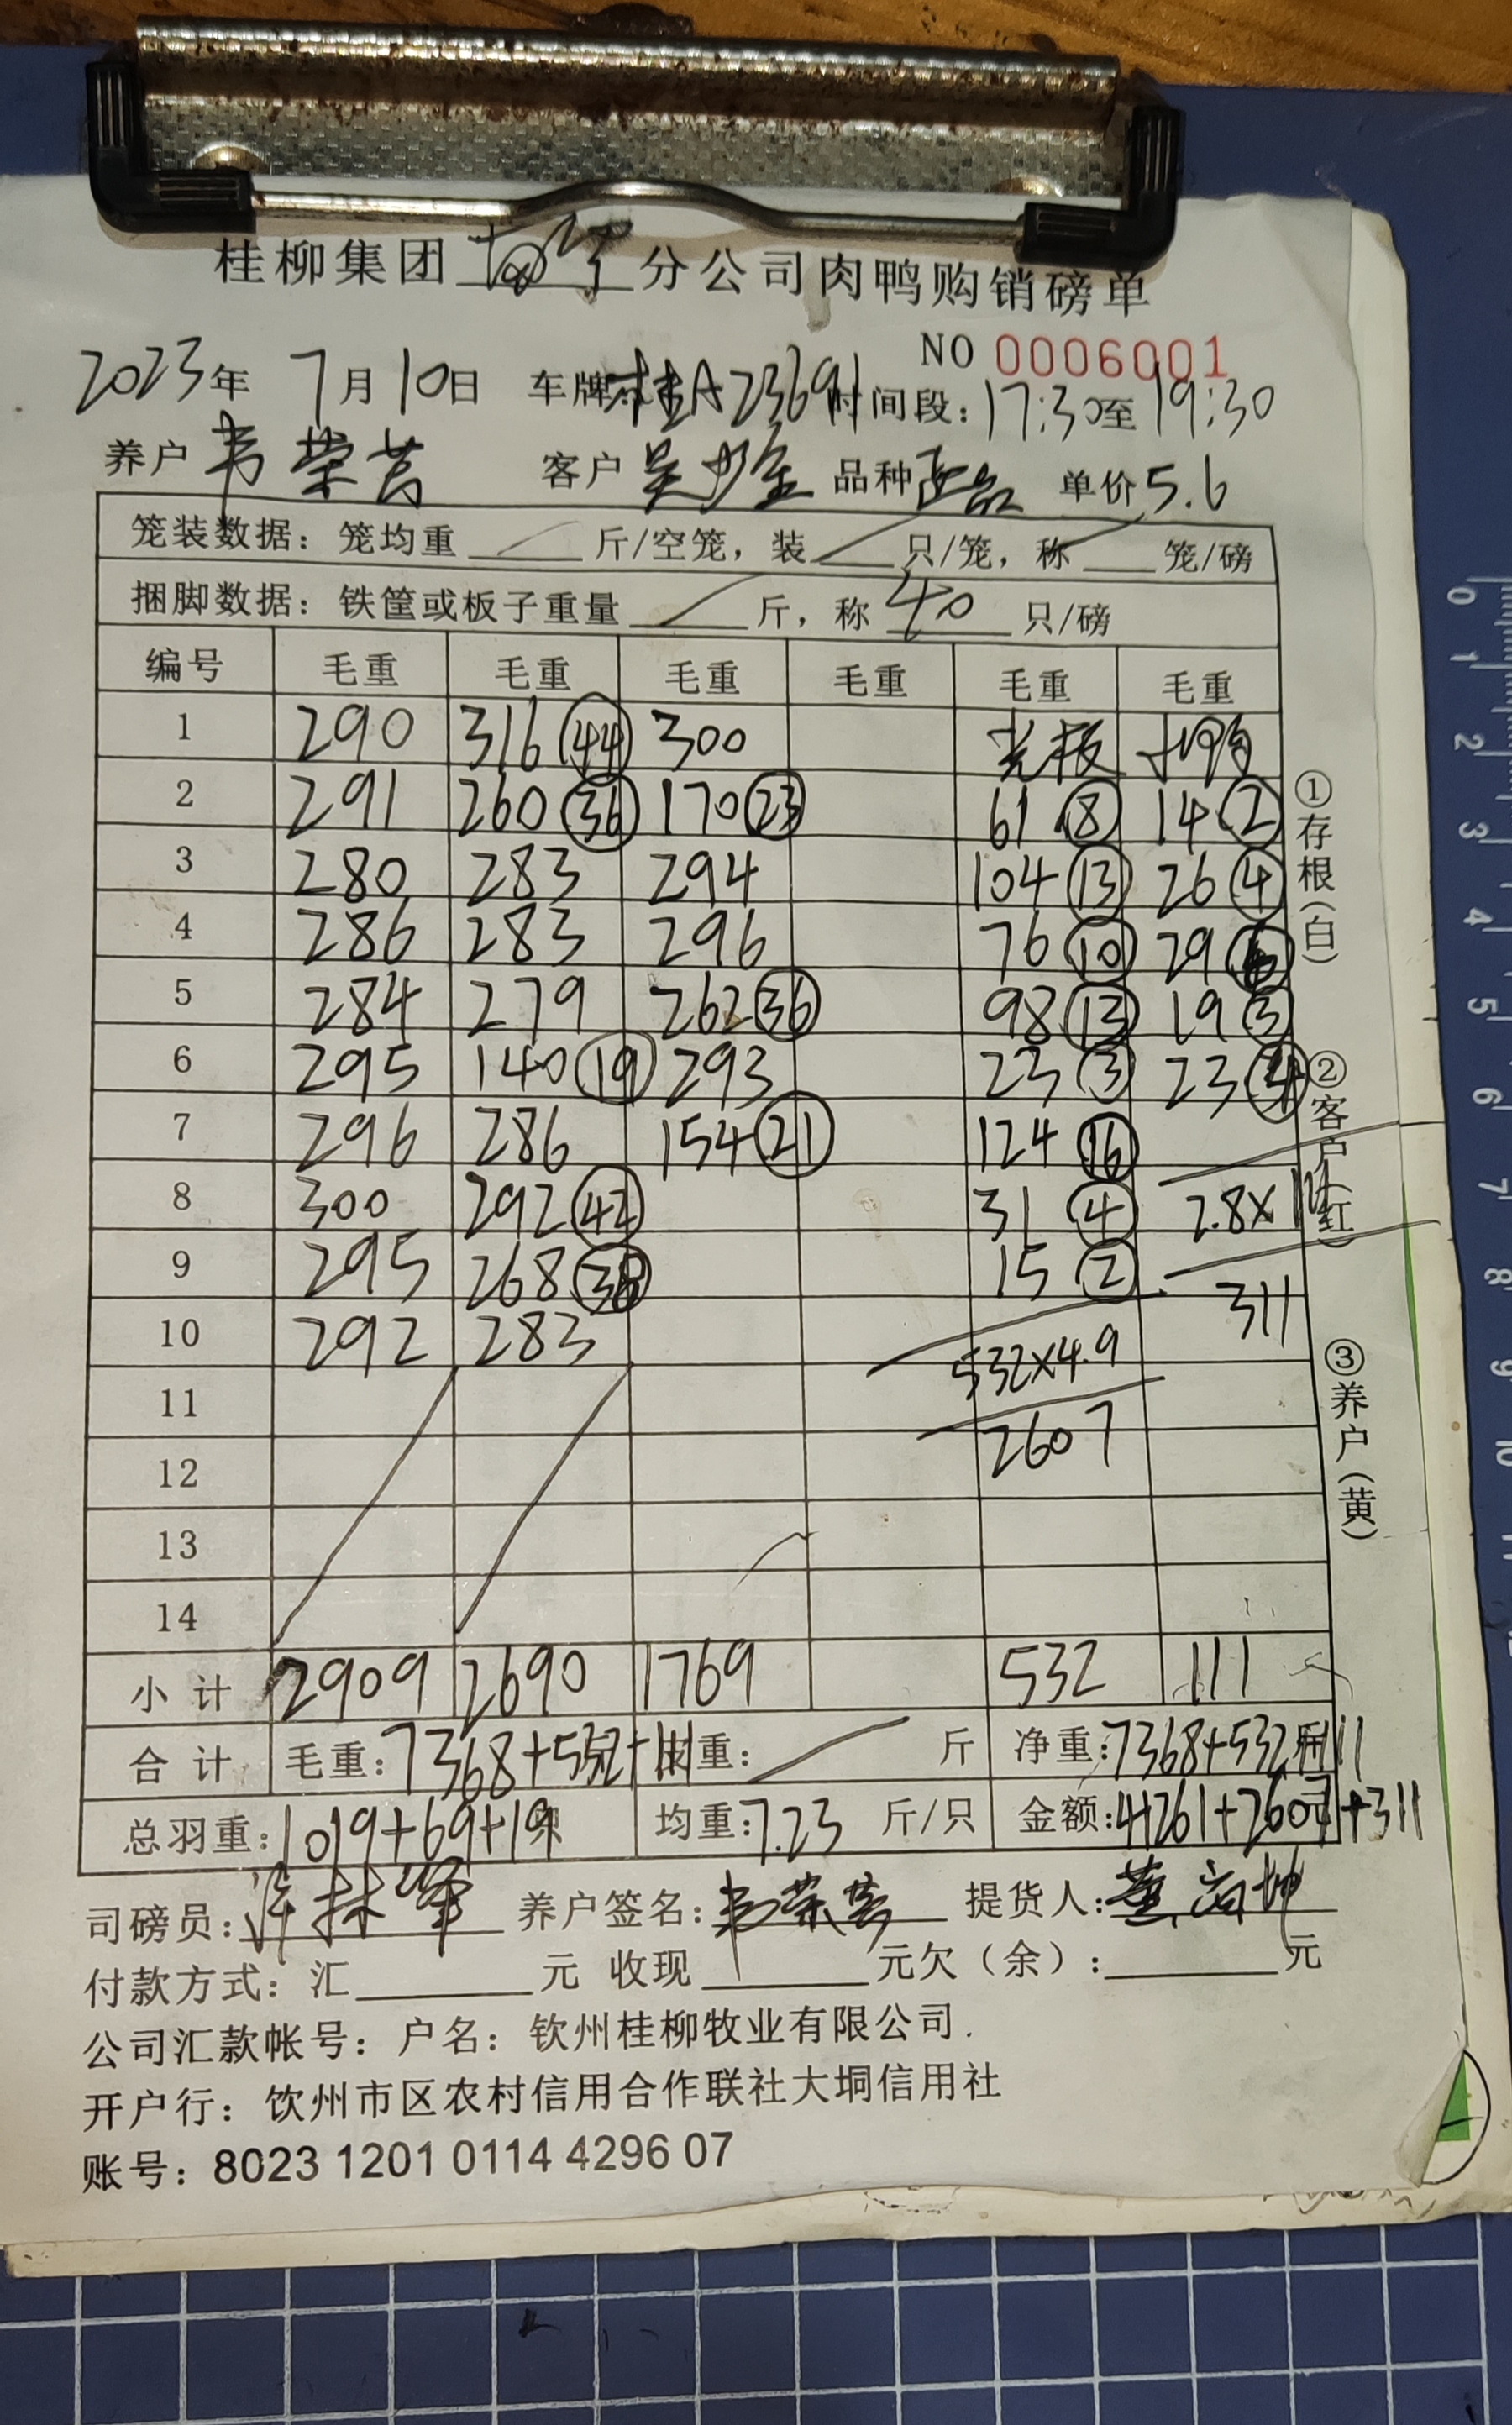 桂柳集团南宁分公司肉鸭购销磅单
NO 0006001
2023年 7月10日 车牌:桂A23691 时间段:17:30至19:30
养户 韦荣芸 客户 吴 品种 正品 单价 5.6
笼装数据:笼均重 斤/空笼,装 只/笼,称 笼/磅
捆脚数据:铁筐或板子重量 斤,称 40 只/磅
编号 毛重 毛重 毛重 毛重 毛重 毛重
1 290 316 (44) 300 光板
2 291 260 (36) 170 (23) 61 (8) 14 (2)
3 280 283 294 104 (13) 26 (4)
4 286 283 296 76 (10) 29
5 284 279 262 (36) 98 (13) 19 (3)
6 295 140 (19) 293 23 (3) 23 (4)
7 296 286 154 (21) 124 (16)
8 300 292 (42) 31 (4) 2.8×111
9 295 268 (38) 15 (2) 311
10 292 283 532×4.9
11
12 2607
13
14
小计 2909 2690 1769 532 111
合计 毛重:7368+532+111 重: 斤 净重:7368+532+111
总羽重:1019+69+19 均重:7.23 斤/只 金额:41261+2607元+311
司磅员:许林峰 养户签名:韦荣芸 提货人:
付款方式:汇 元 收现 元欠(余): 元
公司汇款帐号:户名:钦州桂柳牧业有限公司.
开户行:饮州市区农村信用合作联社大垌信用社
账号:8023 1201 0114 4296 07
①存根(白)
②客户(红)
③养户(黄)
0
1
2
3
4
5
6
7
8
9
10
11